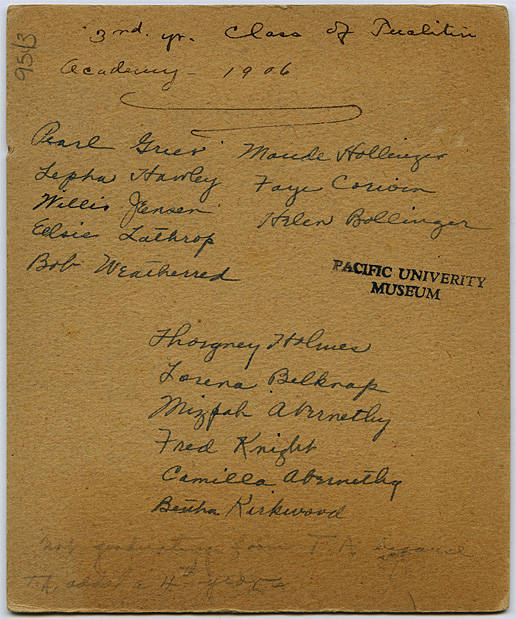 9513
3rd. yr. Class of Tualitin
Academy - 1906
Pearl Grier
Lepha Hawley
Willis Jensen
Elsie Lathrop
Bob Weatherred
Maude Hollinger
Faye Corwin
Helen Bollinger
PACIFIC UNIVERITY
MUSEUM
Thorgney Holmes
Lorena Belknap
Mizpah Abernethy
Fred Knight
Camilla Abernethy
Bertha Kirkwood
Not graduating from T.A. because
T.A. added a 4th yr